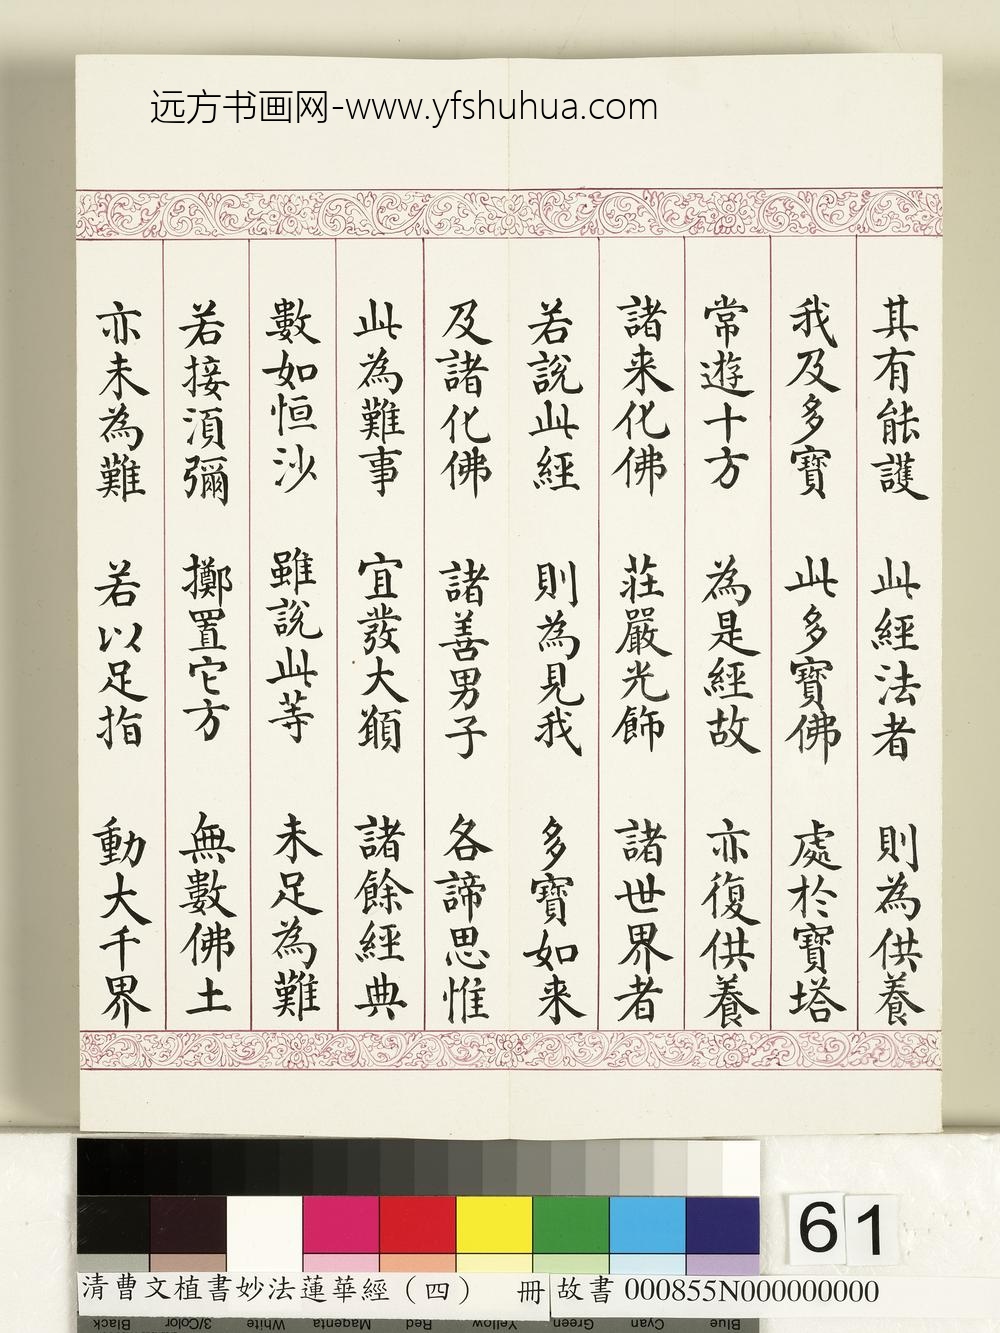 远方书画网-www.yfshuhua.com
其有能護 此經法者 則為供養
我及多寶 此多寶佛 處於寶塔
常遊十方 為是經故 亦復供養
諸来化佛 莊嚴光飾 諸世界者
若說此經 則為見我 多寶如来
及諸化佛 諸善男子 各諦思惟
此為難事 宜發大願 諸餘經典
數如恒沙 雖說此等 未足為難
若接須彌 擲置它方 無數佛土
亦未為難 若以足指 動大千界
61
清曹文植書妙法蓮華經（四） 冊 故書 000855N000000000
Black 3/Color White Magenta Red Yellow Green Cyan Blue